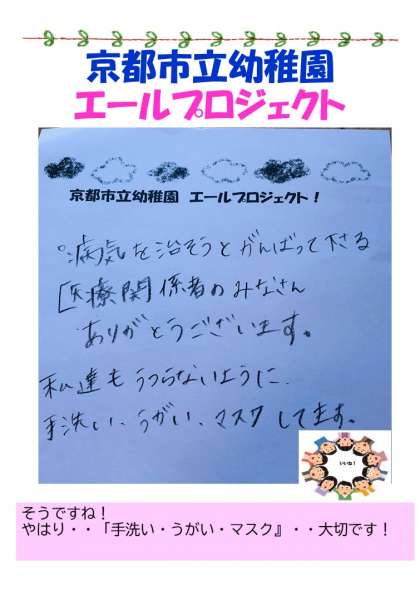 京都市立幼稚園
エールプロジェクト
京都市立幼稚園 エールプロジェクト！
病気を治そうとがんばって下さる
医療関係者のみなさん
ありがとうございます。
私達もうつらないように、
手洗い、うがい、マスクしてます。
いいね！
そうですね！
やはり・・「手洗い・うがい・マスク』・・大切です！